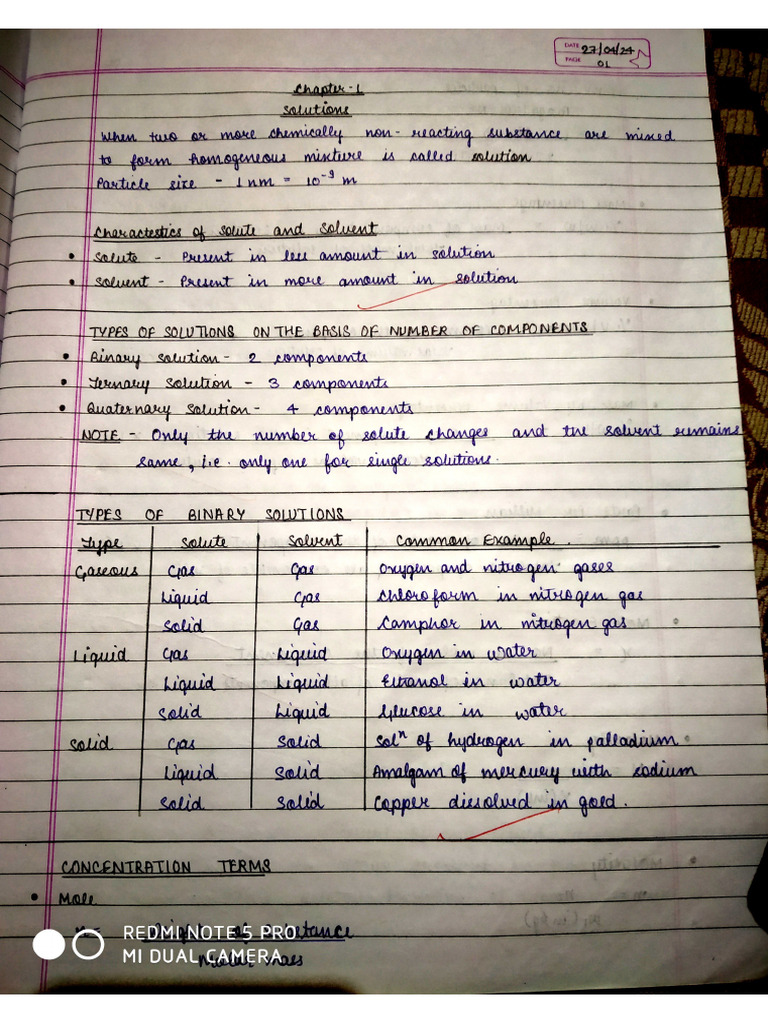 DATE 27/04/24
PAGE 01
Chapter-1
Solutions
When two or more chemically non-reacting substance are mixed
to form homogeneous mixture is called solution
Particle size - 1 nm = 10⁻⁹ m
Charactestics of solute and solvent
• Solute - Present in less amount in solution
• Solvent - Present in more amount in solution
TYPES OF SOLUTIONS ON THE BASIS OF NUMBER OF COMPONENTS
• Binary solution - 2 components
• Ternary solution - 3 components
• Quaternary solution - 4 components
NOTE - Only the number of solute changes and the solvent remains
same, i.e. only one for single solutions.
TYPES OF BINARY SOLUTIONS
Type Solute Solvent Common Example.
Gaseous Gas Gas Oxygen and nitrogen gases
Liquid Gas Chloroform in nitrogen gas
Solid Gas Camphor in nitrogen gas
Liquid Gas Liquid Oxygen in water
Liquid Liquid Ethanol in water
Solid Liquid Glucose in water
Solid Gas Solid Solⁿ of hydrogen in palladium
Liquid Solid Amalgam of mercury with sodium
Solid Solid Copper dissolved in gold.
CONCENTRATION TERMS
• Mole
of substance
Molar mass
REDMI NOTE 5 PRO
MI DUAL CAMERA